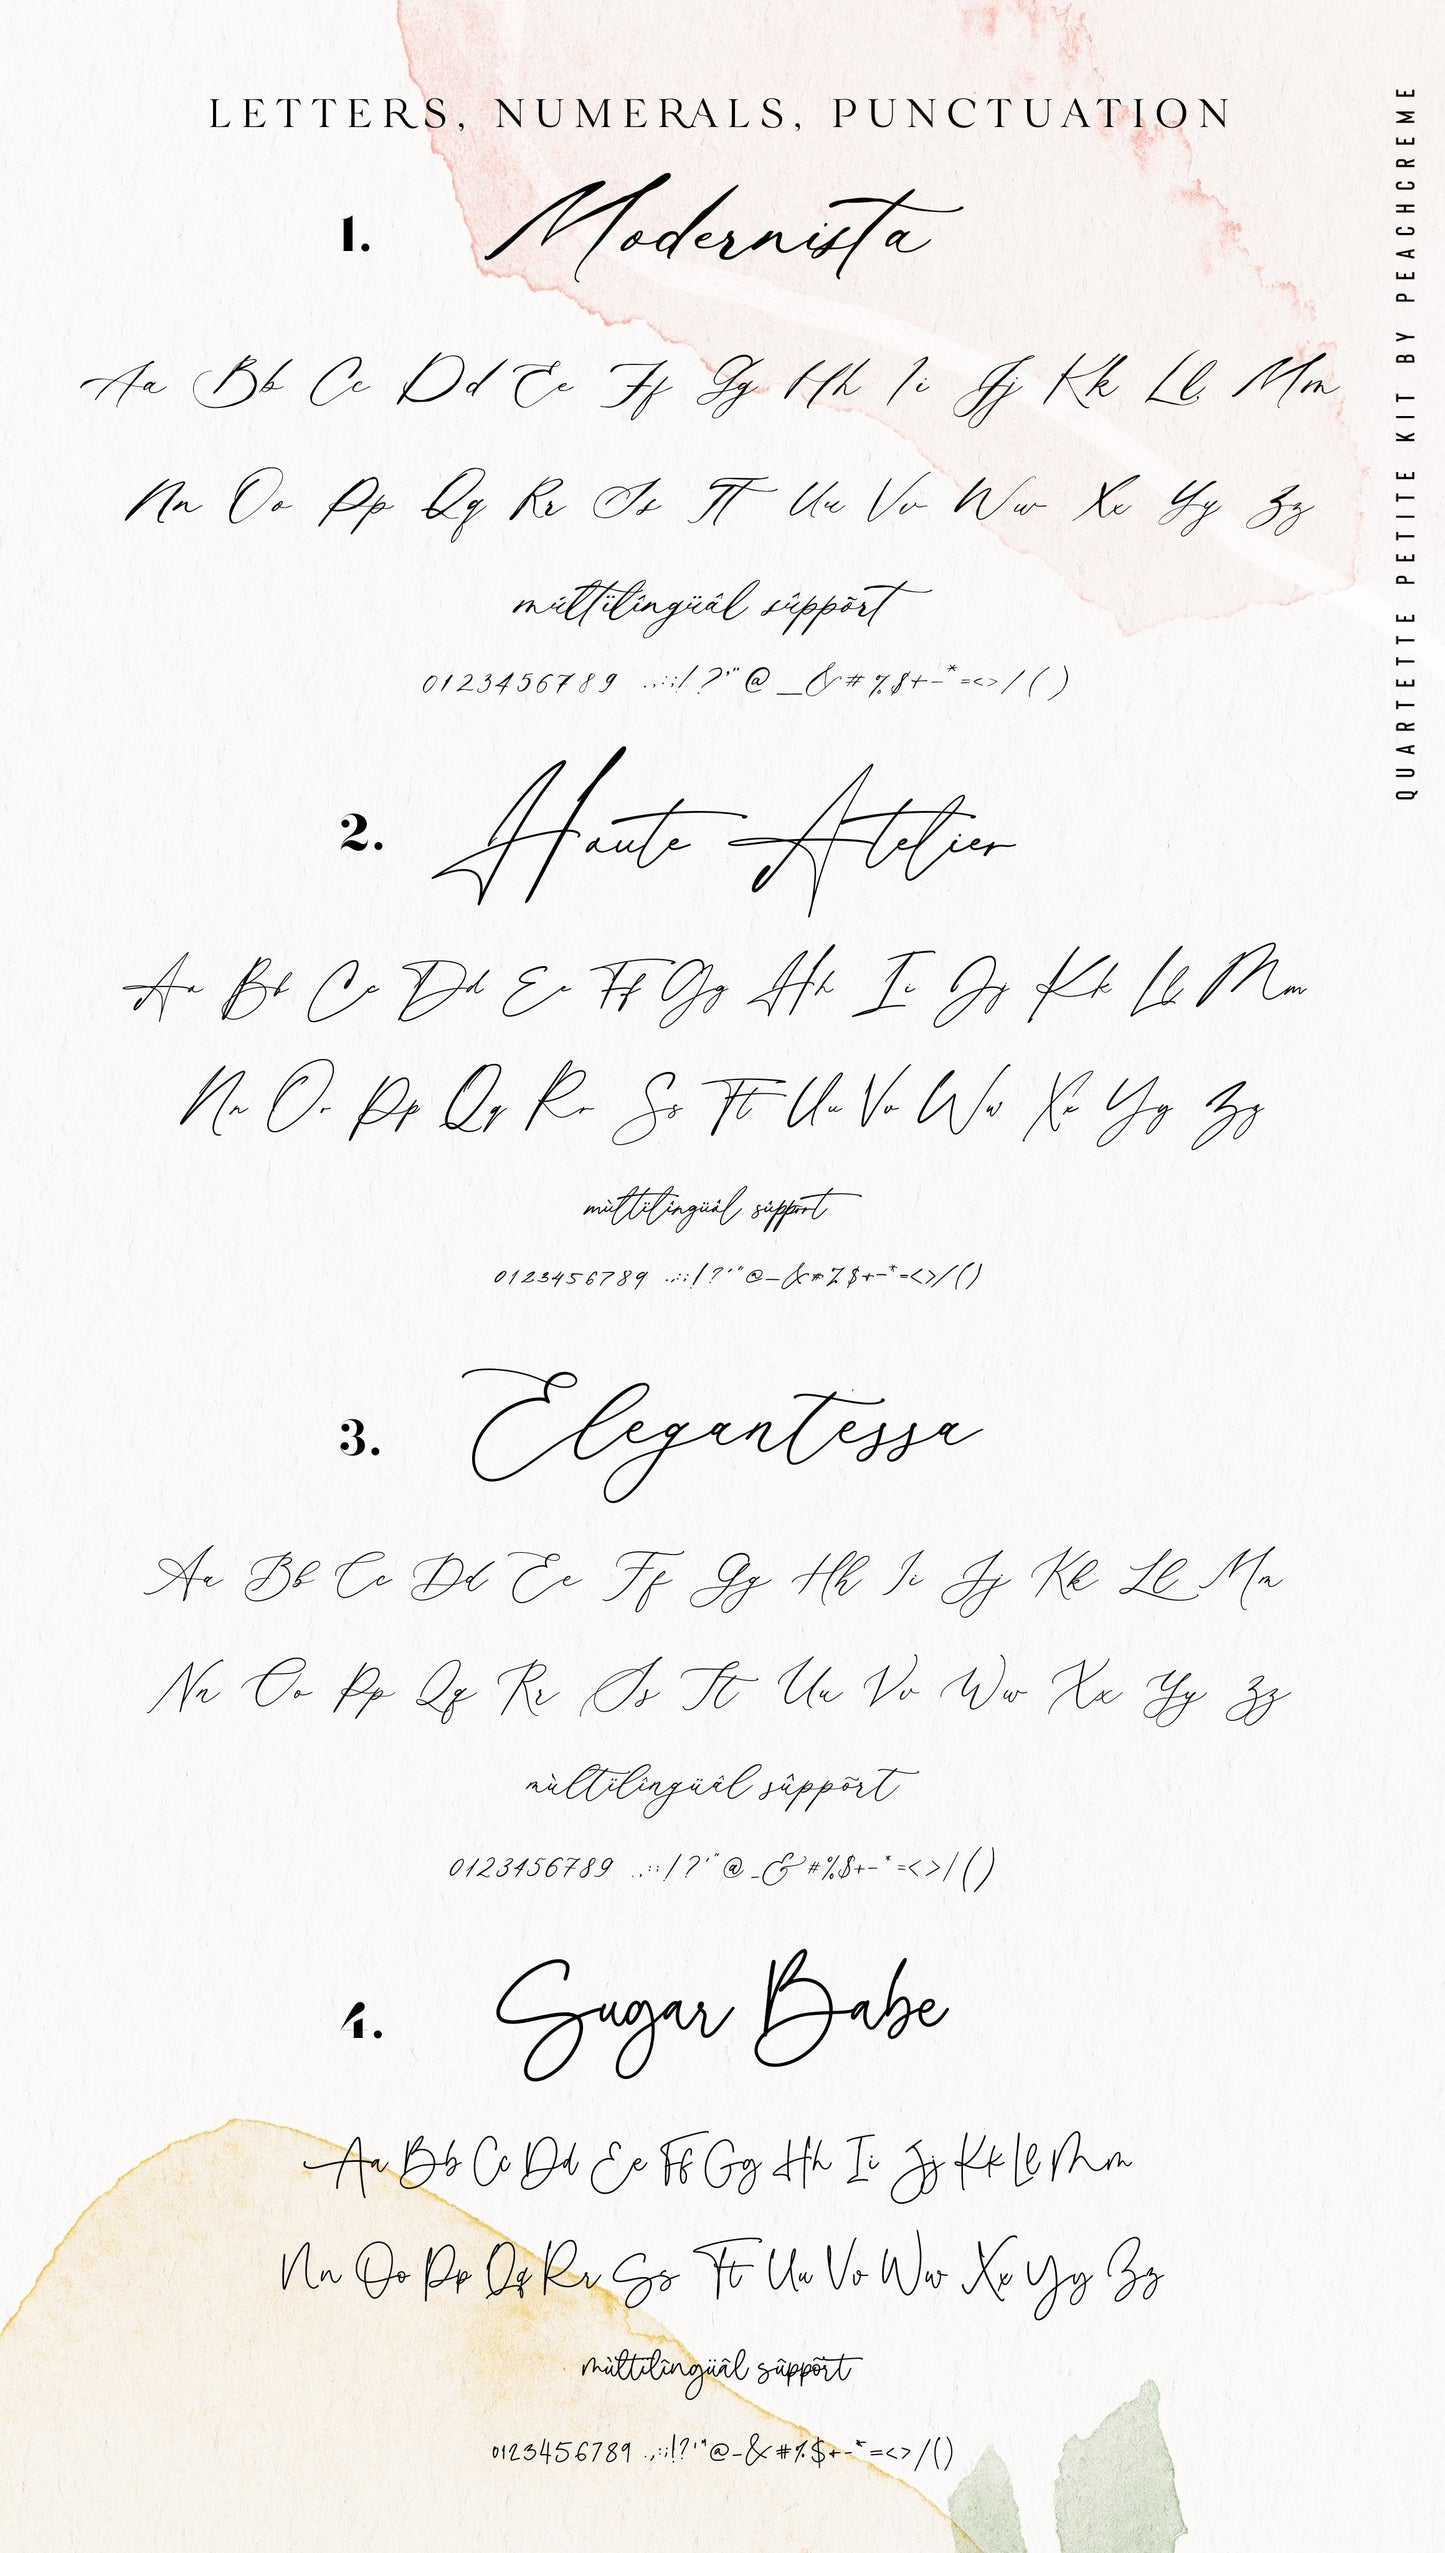 LETTERS, NUMERALS, PUNCTUATION
1. Modernista
Aa Bb Cc Dd Ee Ff Gg Hh Ii Jj Kk Ll Mm
Nn Oo Pp Qq Rr Ss Tt Uu Vv Ww Xx Yy Zz
múltïlîngüâl sûppõrt
0123456789 .,:;!?'"@_&#%$+-*=<>/()
2. Haute Atelier
Aa Bb Cc Dd Ee Ff Gg Hh Ii Jj Kk Ll Mm
Nn Oo Pp Qq Rr Ss Tt Uu Vv Ww Xx Yy Zz
mùltïlîngüâl sûppõrt
0123456789 .,:;!?'"@_&#%$+-*=<>/()
3. Elegantessa
Aa Bb Cc Dd Ee Ff Gg Hh Ii Jj Kk Ll Mm
Nn Oo Pp Qq Rr Ss Tt Uu Vv Ww Xx Yy Zz
mùltïlîngüâl sûppõrt
0123456789 .,:;!?'"@_&#%$+-*=<>/()
4. Sugar Babe
Aa Bb Cc Dd Ee Ff Gg Hh Ii Jj Kk Ll Mm
Nn Oo Pp Qq Rr Ss Tt Uu Vv Ww Xx Yy Zz
mùltïlîngüâl sûppõrt
0123456789 .,:;!?'"@_&#%$+-*=<>/()
QUARTETTE PETITE KIT BY PEACHCREME